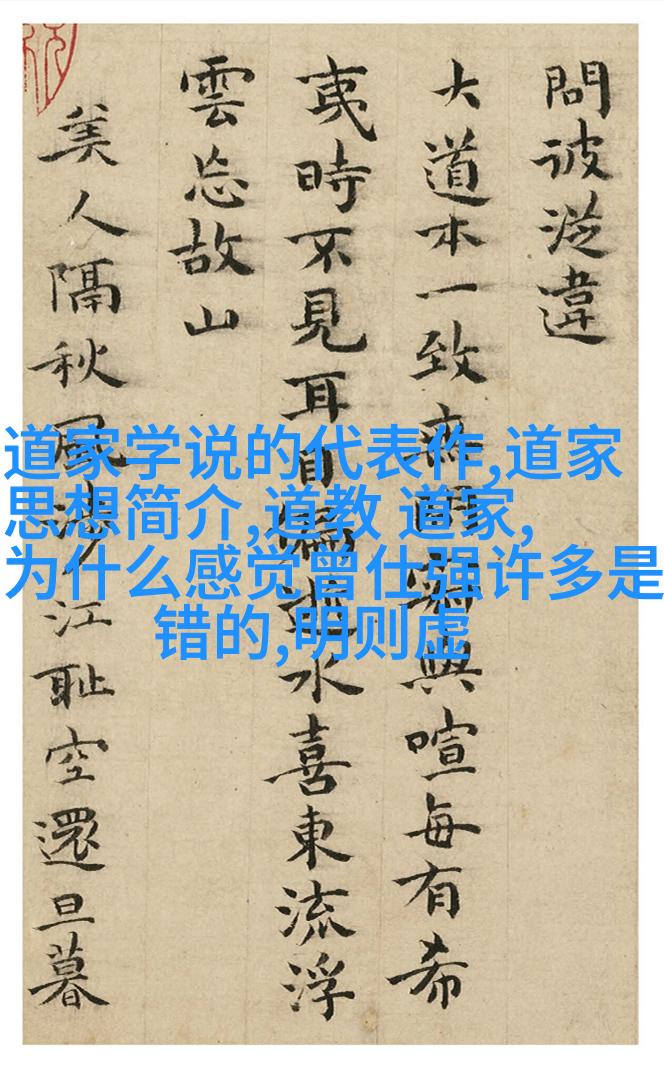 問彼從違
大道本一致無寂與喧每有希
夷時不見耳目水喜東流浮
雲忘故山
美人隔秋風江耻空還旦暮
道家学说的代表作,道家
思想简介,道教 道家,
为什么感觉曾仕强许多是
错的,明则虚